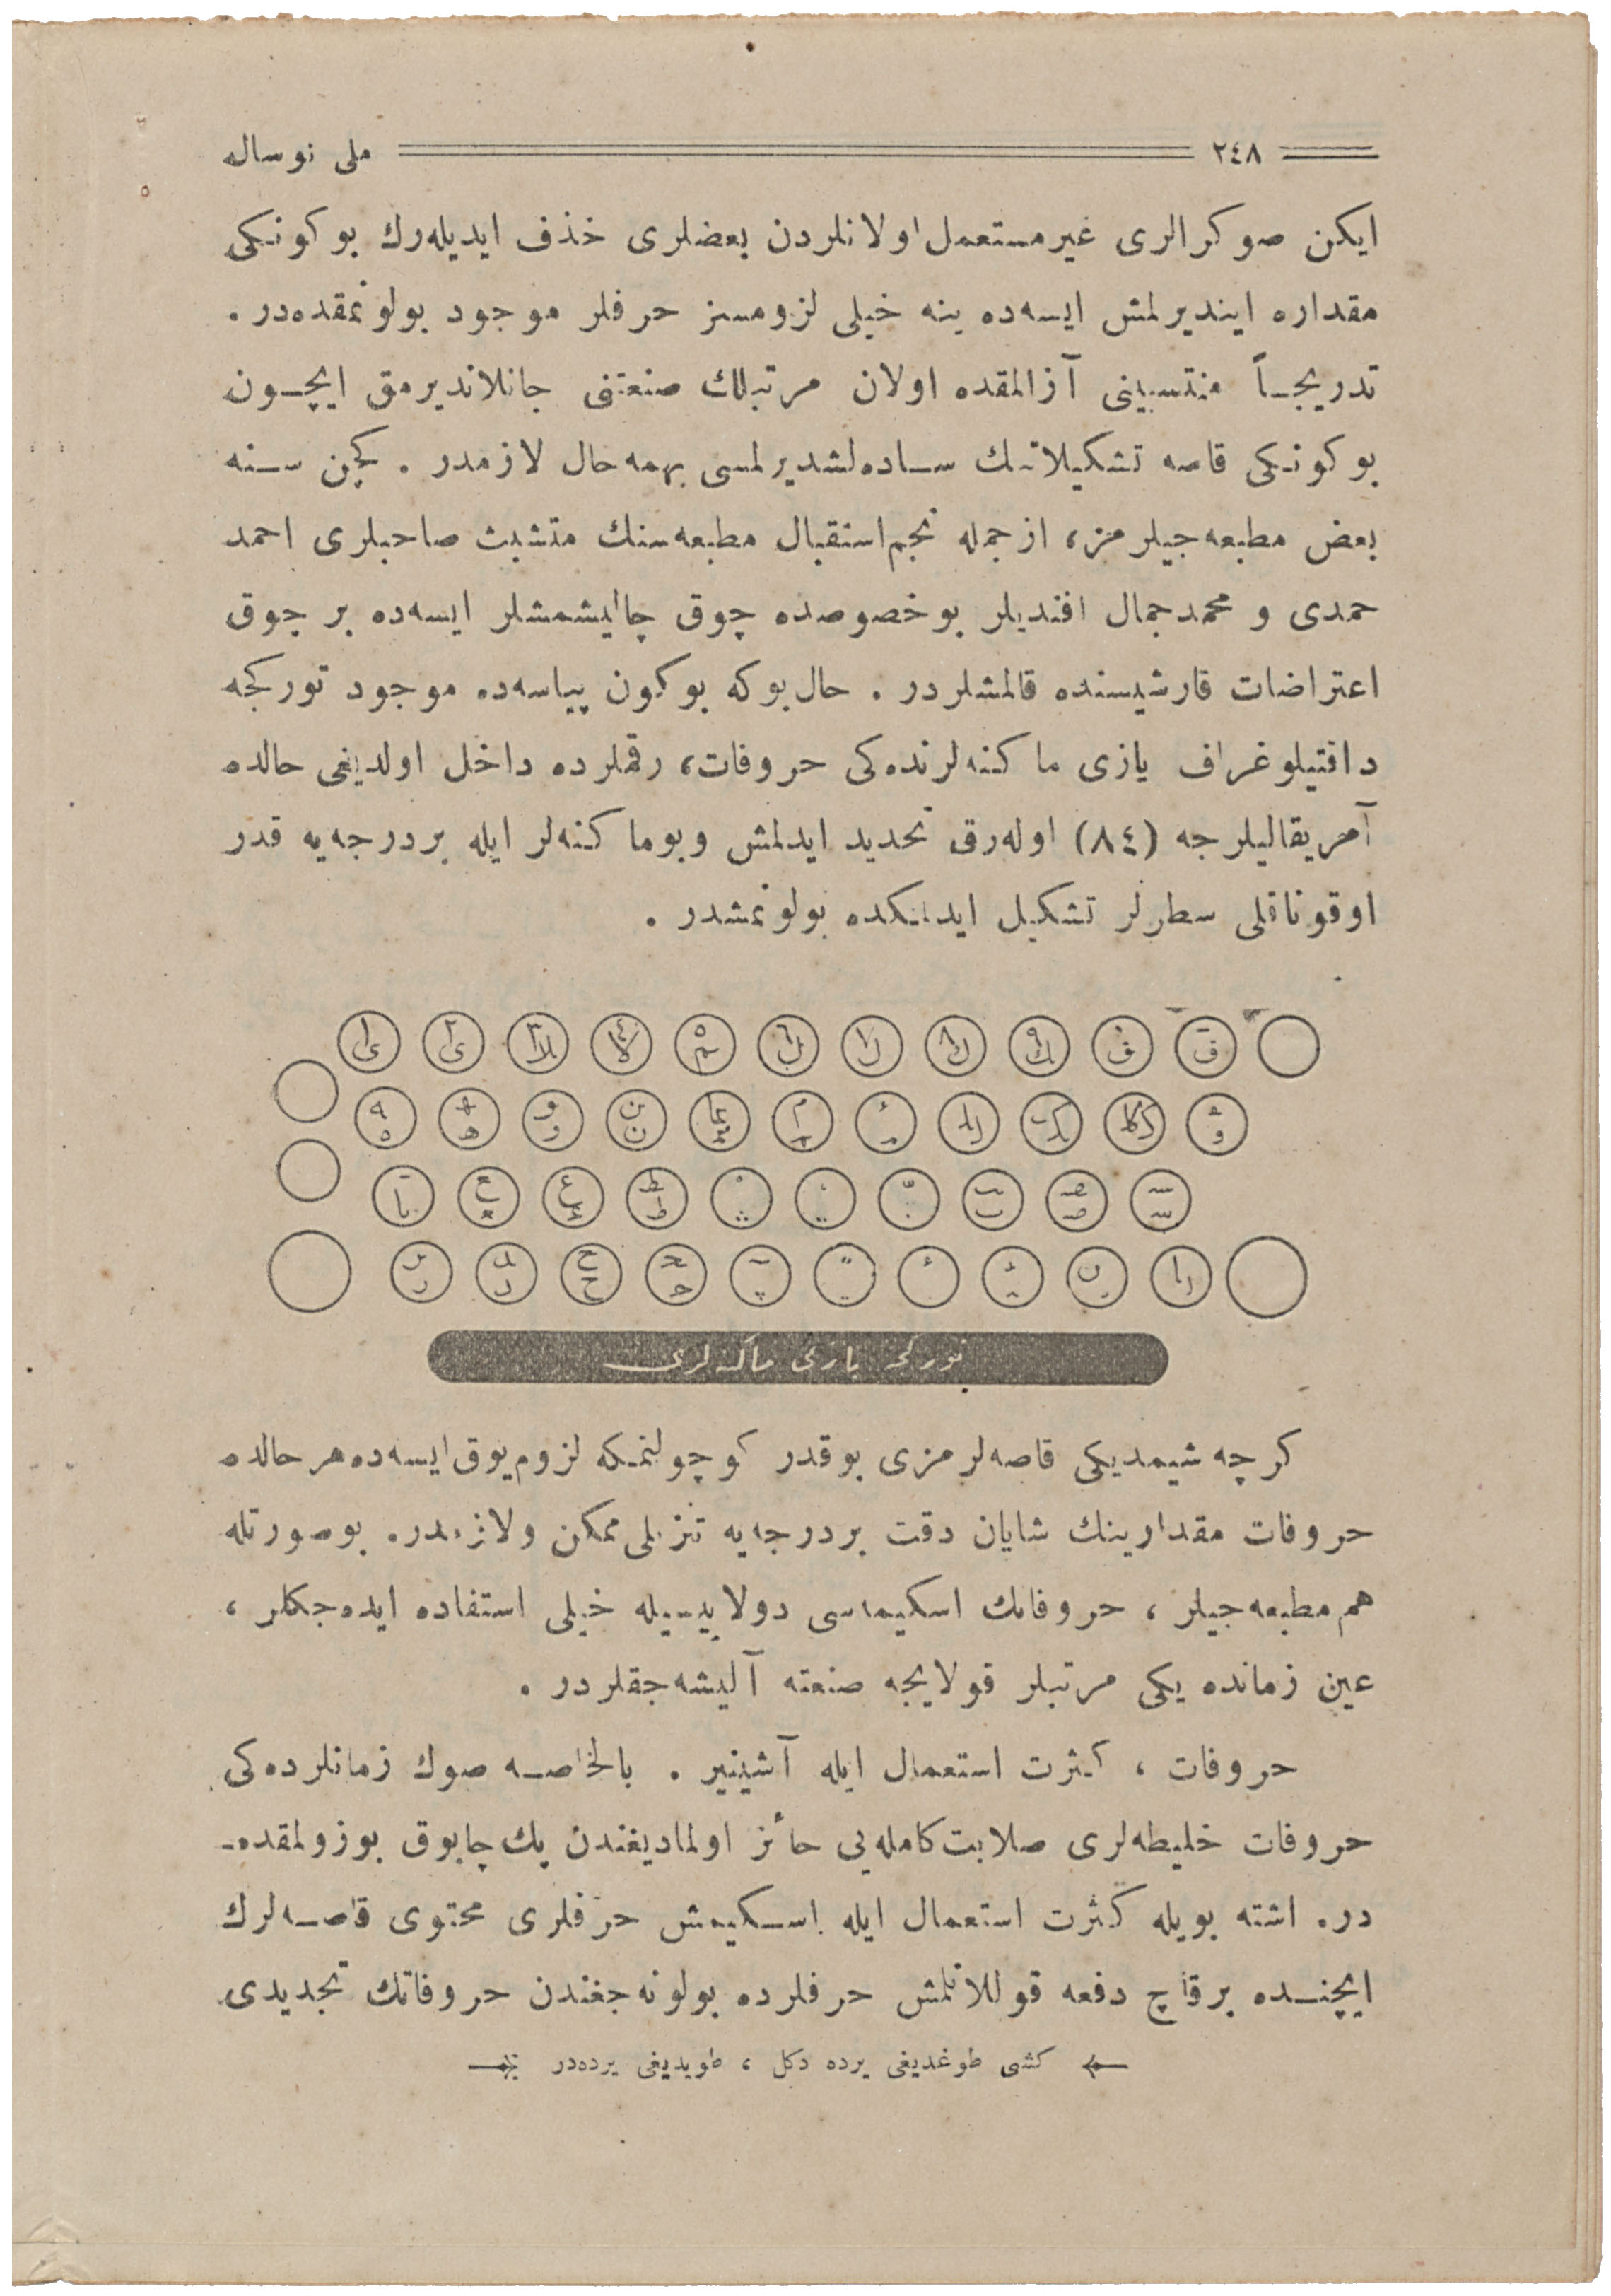 ٢٤٨ ملی نوسال
ایکن صوکرالری غیر مستعمل اولانلردن بعضلری خذف ایدیله‌رك بوکونکی
مقداره ایندیرلمش ایسه‌ده ینه خیلی لزومسز حرفلر موجود بولونمقده‌در .
تدریجاً منتسبینی آزالمقده اولان مرتبلك صنعتنی جانلاندیرمق ایچون
بوکونکی قاصه تشکیلاتنك ساده‌لشدیرلمسی بهمه‌حال لازمدر . کچن سنه
بعض مطبعه‌جیلرمز، ازجمله نجم‌استقبال مطبعه‌سنك متشبث صاحبلری احمد
حمدی و محمدجمال افندیلر بوخصوصده چوق چالیشمشلر ایسه‌ده بر چوق
اعتراضات قارشیسنده قالمشلردر . حال‌بوکه بوکون پیاسه‌ده موجود تورکجه
داقتیلوغراف یازی ماکنه‌لرنده‌کی حروفات، رقملرده داخل اولدیغی حالده
آمریقالیلرجه (٨٤) اوله‌رق تحدید ایدلمش وبوماکنه‌لر ایله بردرجه‌یه قدر
اوقوناقلی سطرلر تشکیل ایدلمکده بولونمشدر .
تورکجه یازی ماکنه‌لری
کرچه شیمدیکی قاصه‌لرمزی بوقدر کوچولتمکه لزوم‌یوق‌ایسه‌ده‌هرحالده
حروفات مقدارینك شایان دقت بردرجه‌یه تنزیلی‌ممکن ولازمدر. بوصورتله
هم‌مطبعه‌جیلر ، حروفاتك اسکیمه‌سی دولاییسیله خیلی استفاده ایده‌جکلر ،
عین زمانده یکی مرتبلر قولایجه صنعته آلیشه‌جقلردر .
حروفات ، کثرت استعمال ایله آشینیر . بالخاصه صوك زمانلرده‌کی
حروفات خلیطه‌لری صلابت‌کامله‌یی حائز اولمادیغندن پك‌چابوق بوزولمقده‌ـ
در. اشته بویله کثرت استعمال ایله اسکیمش حرفلری محتوی قاصه‌لرك
ایچنده برقاچ دفعه قوللانلمش حرفلرده بولونه‌جغندن حروفاتك تجدیدی
کشی طوغدیغی یرده دکل ، طویدیغی یرده‌در